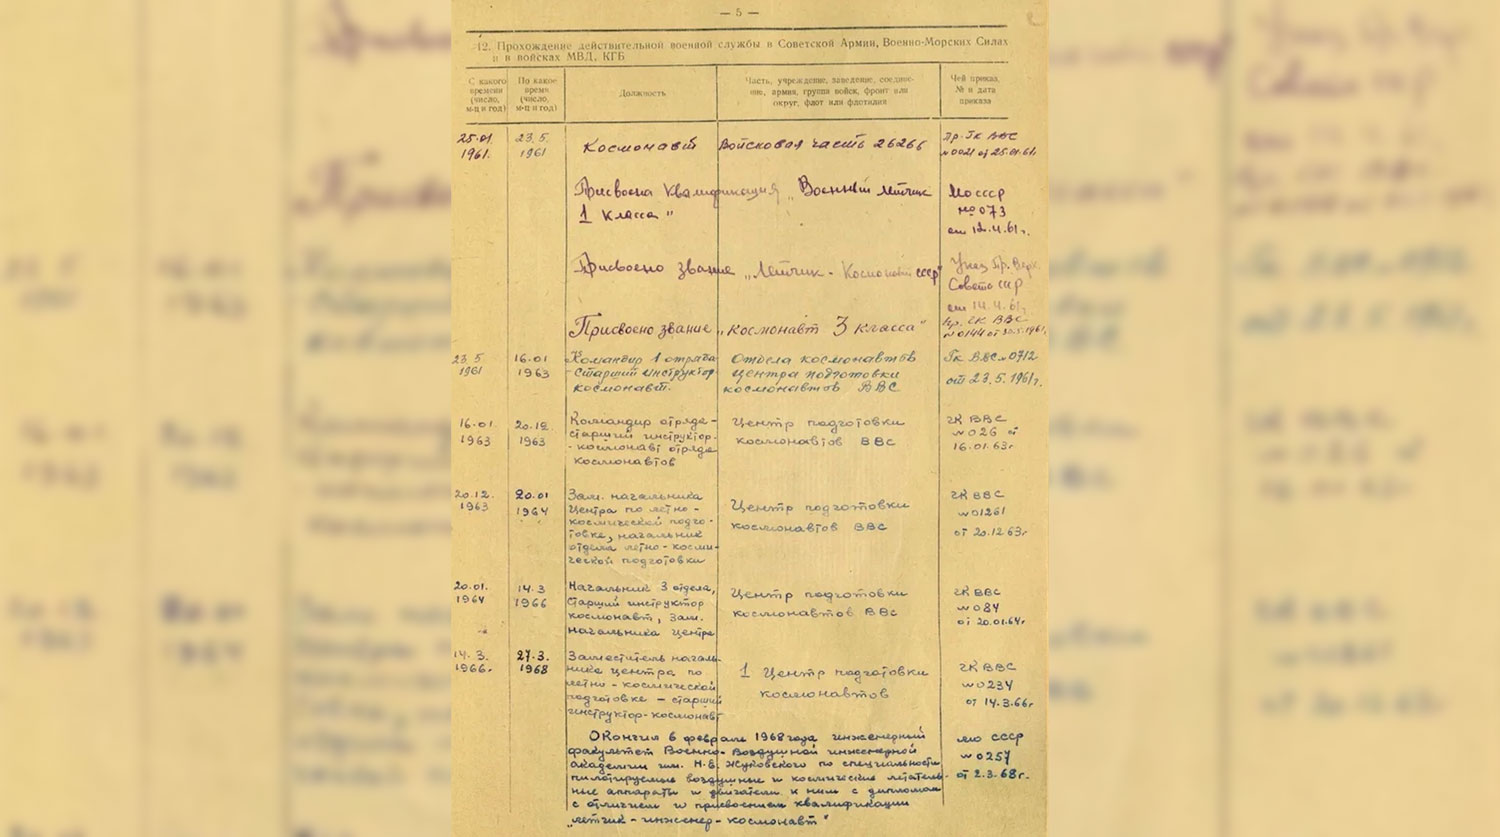 — 5 —
12. Прохождение действительной военной службы в Советской Армии, Военно-Морских Силах
и в войсках МВД, КГБ
С какого времени (число, м-ц и год)
По какое время (число, м-ц и год)
Должность
Часть, учреждение, заведение, соедине-
ние, армия, группа войск, фронт или
округ, флот или флотилия
Чей приказ, № и дата приказа
25.01. 1961.
23.5. 1961
Космонавт
Войсковая часть 26266
Пр. Гк ВВС
№0021 от 25.01.61.
Присвоена квалификация „Военный летчик
1 класса"
МО СССР
№ 073
от 12.4.61г.
Присвоено звание „Летчик-Космонавт СССР"
Указ Пр. Верх.
Совета СССР
от 14.4.61г.
Присвоено звание „Космонавт 3 класса"
Пр. ГК ВВС
№0144 от 30.5.1961.
23.5 1961
16.01 1963
Командир 1 отряда
- старший инструктор
космонавт.
Отдела космонавтов
центра подготовки
космонавтов ВВС
Гк ВВС №0712
от 23.5.1961г.
16.01. 1963
20.12. 1963
Командир отряда-
старший инструктор-
- космонавт отряда
космонавтов
Центр подготовки
космонавтов ВВС
ГК ВВС
№026 от
16.01.63г
20.12. 1963
20.01 1964
Зам. начальника
Центра по летно-
космической подго-
товке, начальник
отдела летно-косми-
ческой подготовки
Центр подготовки
космонавтов ВВС
ГК ВВС
№01261
от 20.12.63г
20.01. 1964
14.3 1966
Начальник 3 отдела,
старший инструктор
космонавт, зам.
начальника центра
Центр подготовки
космонавтов ВВС
ГК ВВС
№084
от 20.01.64г
14.3. 1966г.
27.3. 1968
Заместитель началь-
ника центра по
летно-космической
подготовке - старший
инструктор-космонавт
1 Центр подготовки
космонавтов
ГК ВВС
№0234
от 14.3.66г
Окончил 6 февраля 1968 года инженерный
факультет Военно-Воздушной инженерной
академии им. Н.Е. Жуковского по специальности
пилотируемые воздушные и космические летатель-
ные аппараты и двигатели к ним с дипломом
с отличием и присвоением квалификации
„летчик-инженер-космонавт"
МО СССР
№0257
от 2.3.68г.